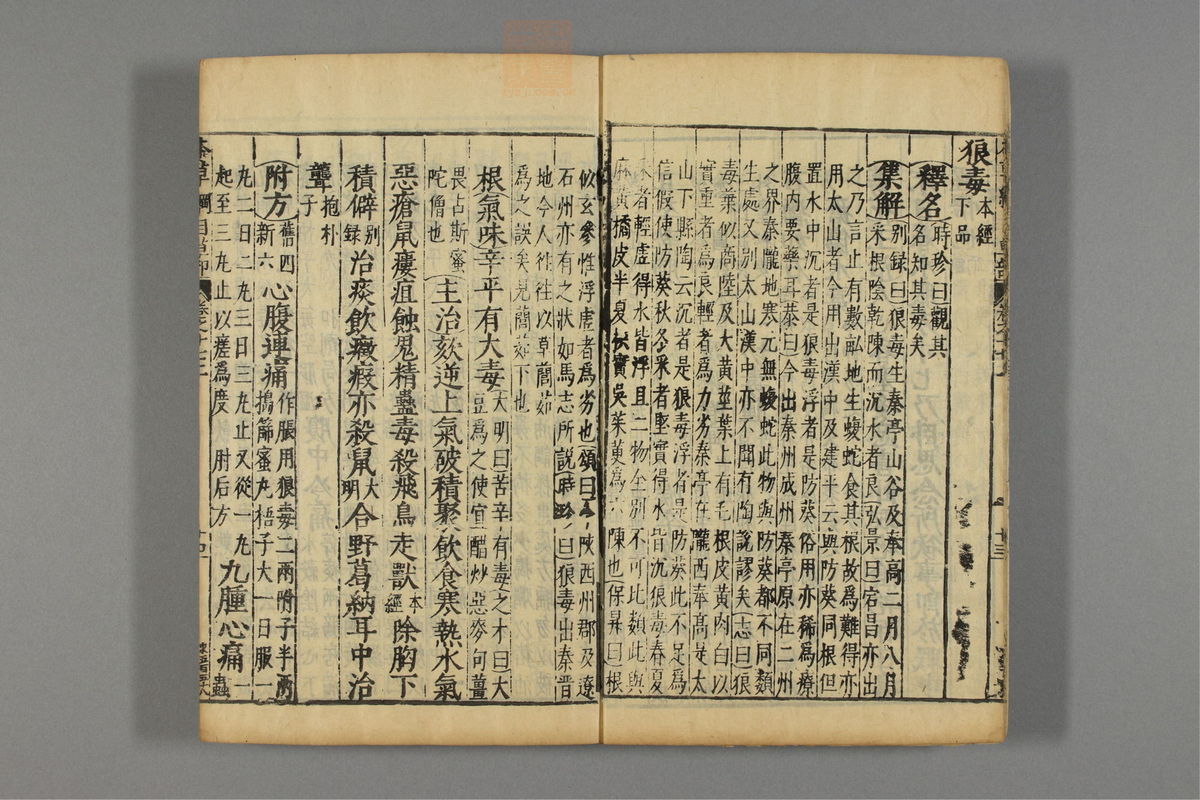 狼毒本經下品
釋名時珍曰觀其名知其毒矣
集解別録曰狼毒生秦亭山谷及奉高二月八月
采根陰乾陳而沉水者良弘景曰宕昌亦出
之乃言止有數畝地生蝮蛇食其根故爲難得亦
用太山者今用出漢中及建平云與防葵同根但
置水中沉者是狼毒浮者是防葵俗用亦稀爲療
腹内要藥耳恭曰今出秦州成州秦亭原在二州
之界秦隴地寒元無蝮蛇此物與防葵都不同類
生處又别太山漢中亦不聞有陶說謬矣志曰狼
毒葉似商陸及大黄莖葉上有毛根皮黄肉白以
實重者爲良輕者爲力劣秦亭在隴西奉高是太
山下縣陶云沉者是狼毒浮者是防葵此不足爲
信假使防葵秋冬采者堅實得水皆沉狼毒春夏
采者輕虛得水皆浮且二物全别不可比類此與
麻黄橘皮半夏枳實吳茱萸爲六陳也保昇曰根
似玄參惟浮虛者爲劣也頌曰今陜西州郡及遼
石州亦有之狀如馬志所說時珍曰狼毒出秦晋
地今人往往以草䕡茹
爲之誤矣見䕡茹下也
根氣味辛平有大毒大明曰苦辛有毒之才曰大豆爲之使宜醋炒惡麥句薑
畏占斯蜜陀僧也主治欬逆上氣破積聚飲食寒熱水氣
惡瘡鼠瘻疽蝕鬼精蠱毒殺飛鳥走獸本經除胸下
積僻別録治痰飲癥瘕亦殺鼠大明合野葛納耳中治
聾抱朴子
附方舊四新六心腹連痛作脹用狼毒二兩附子半兩搗篩蜜丸梧子大一日服一
丸二日二丸三日三丸止又從一丸起至三丸止以瘥爲度肘后方九腫心痛一蟲